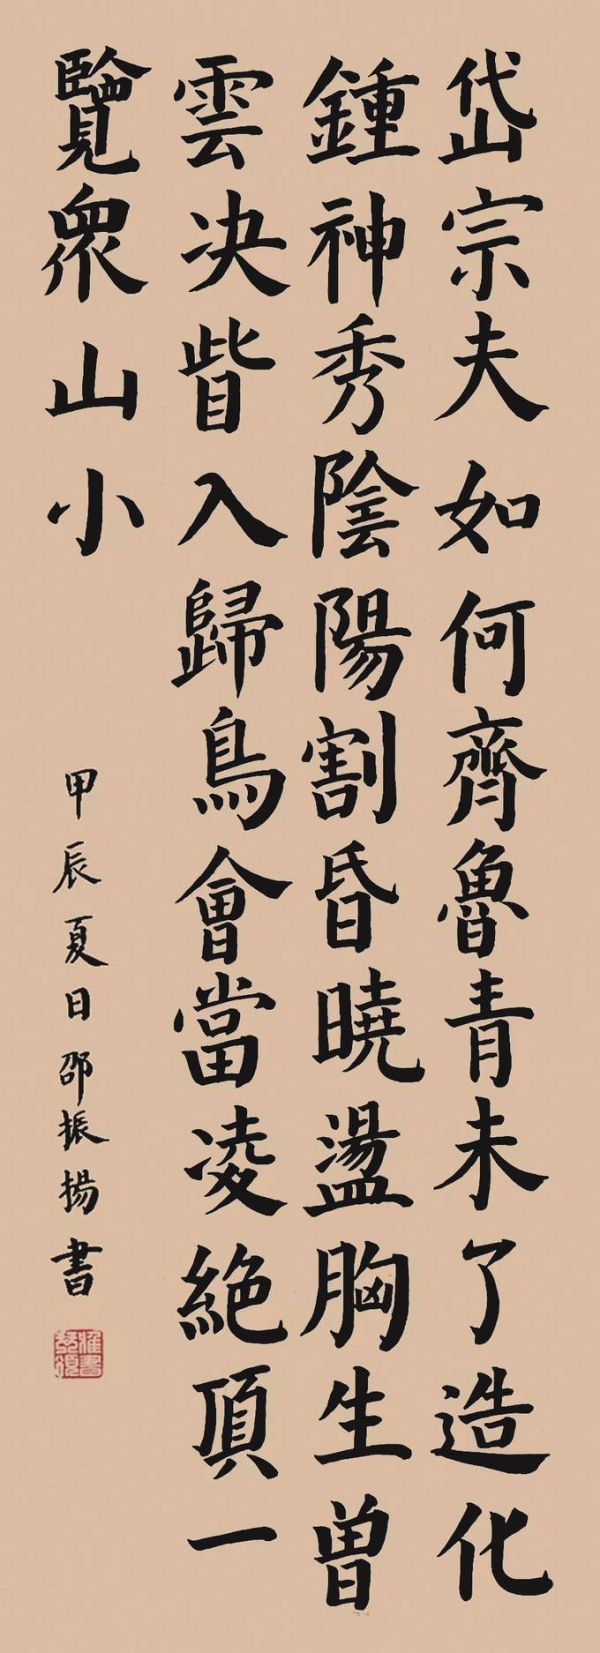 岱宗夫如何齊魯青未了造化
鍾神秀陰陽割昏曉盪胸生曾
雲決眥入歸鳥會當凌絕頂一
覽衆山小
甲辰夏日邵振揚書